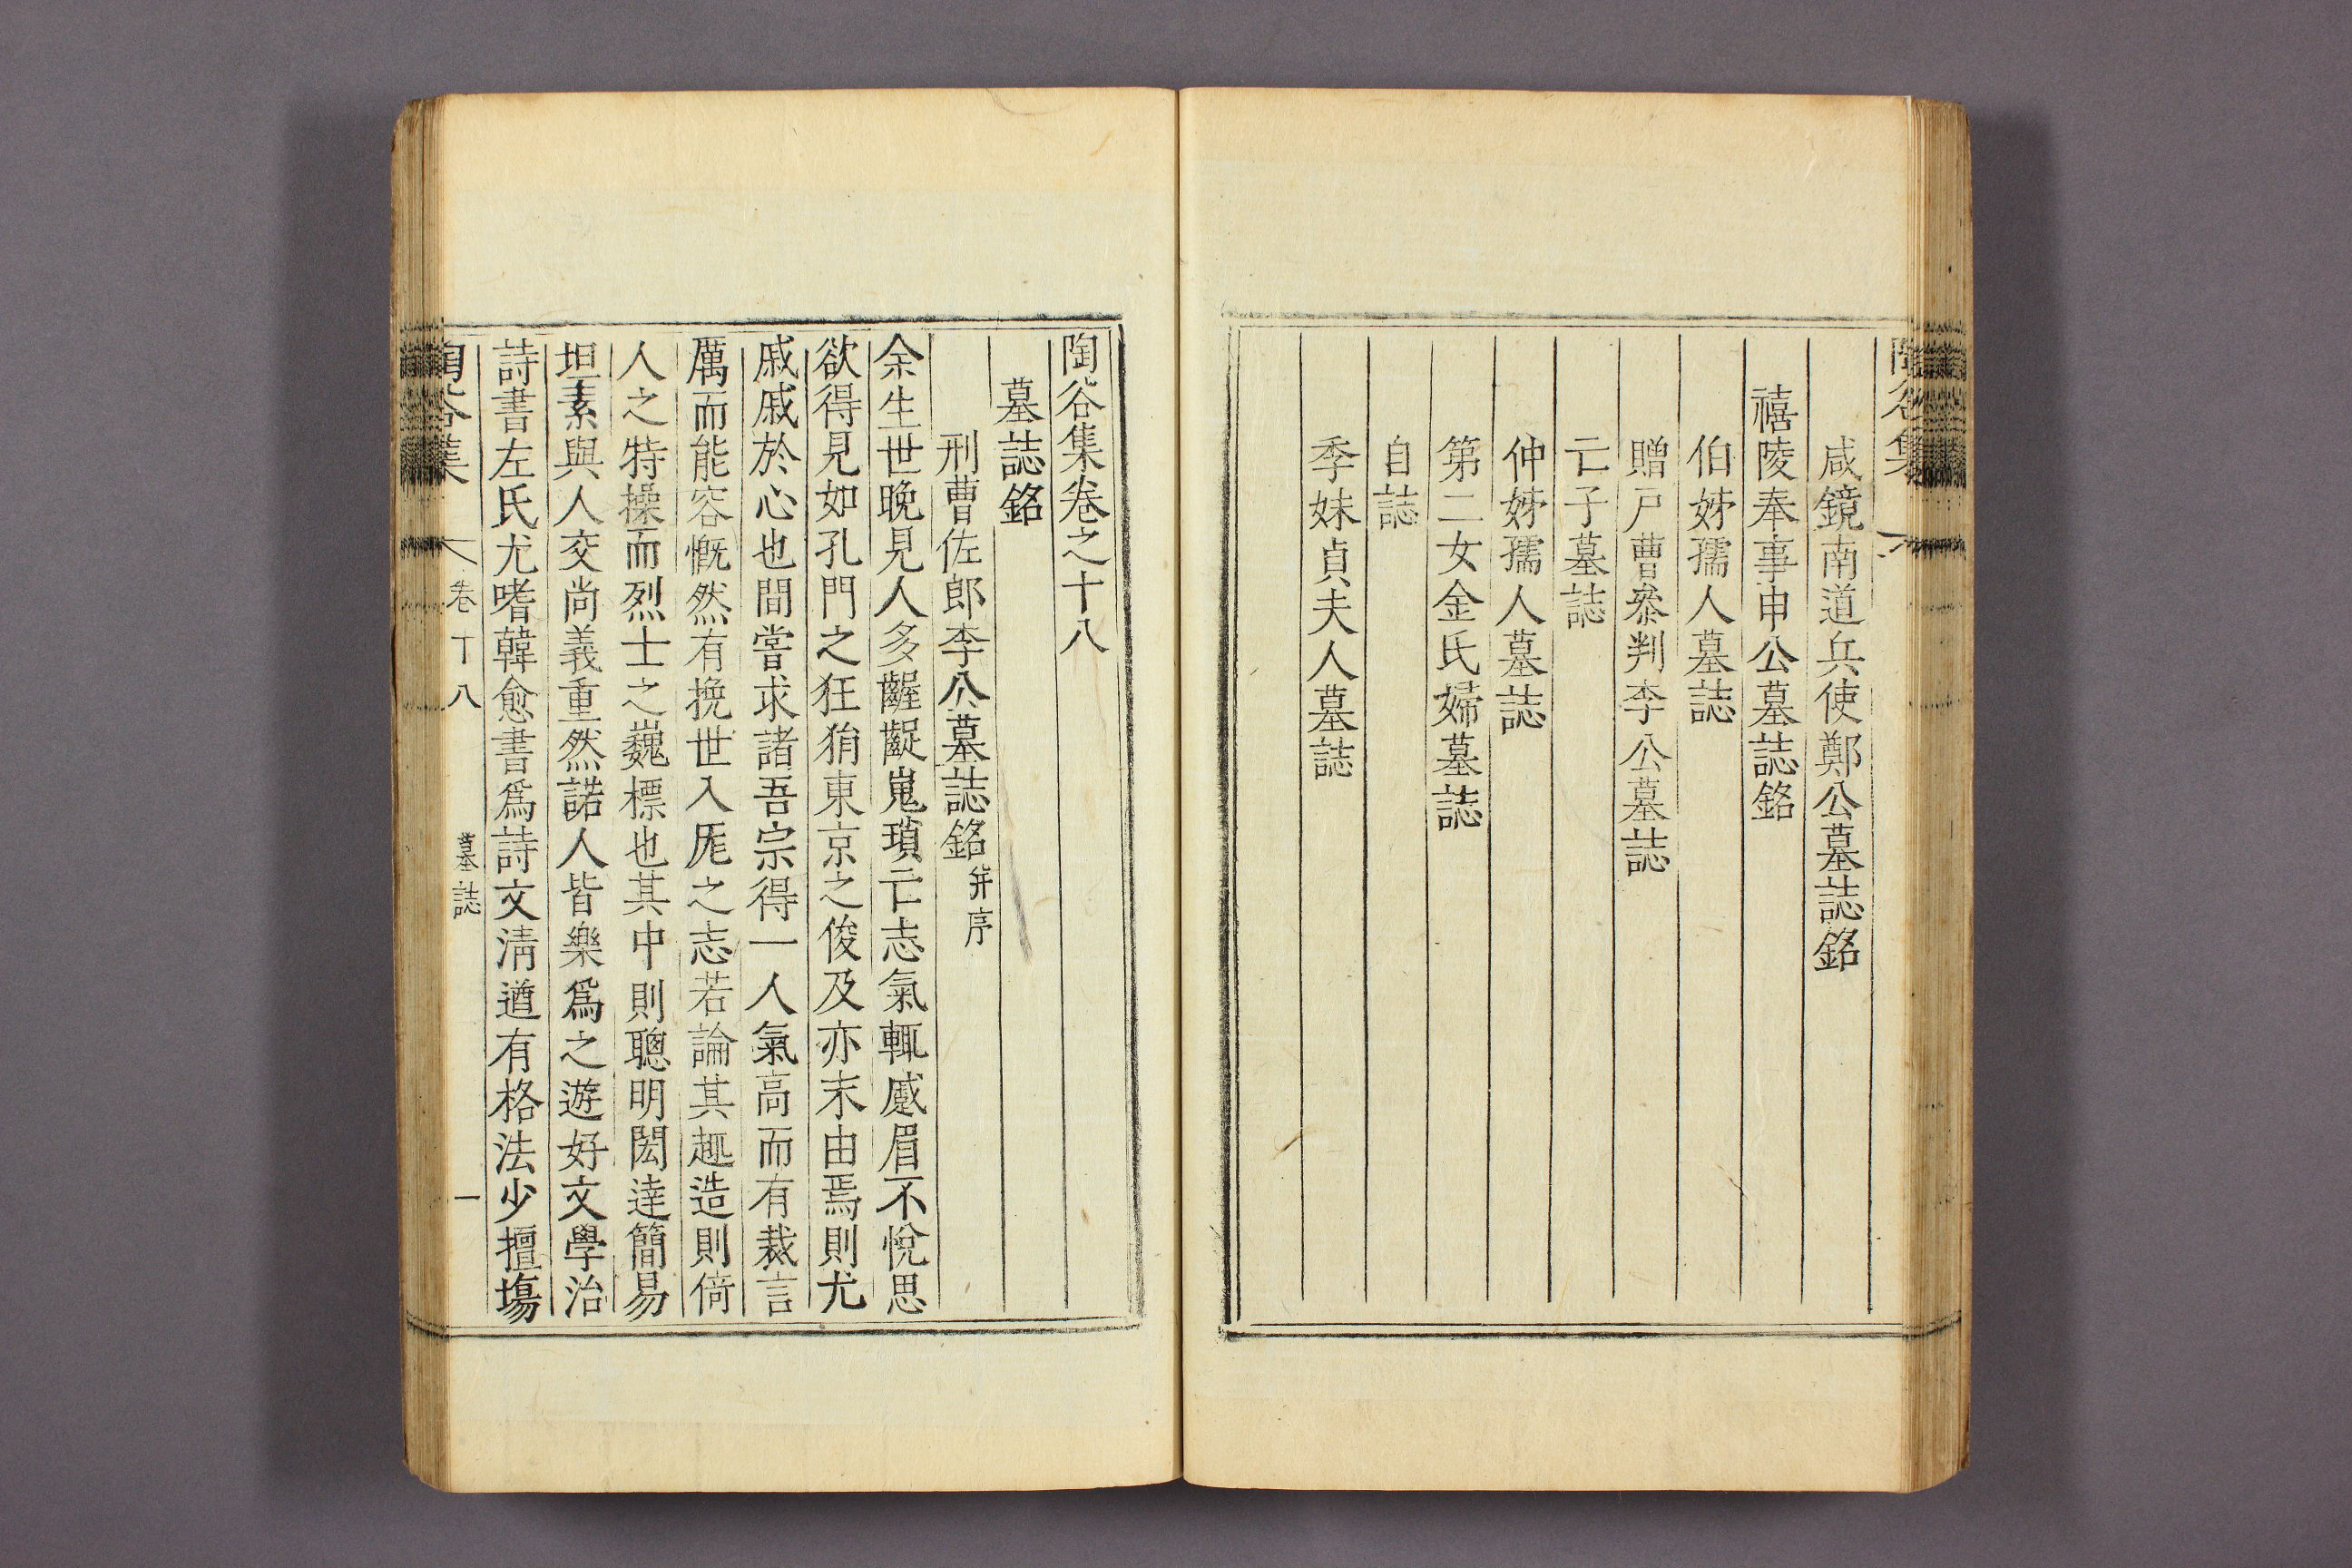 陶谷集
咸鏡南道兵使鄭公墓誌銘
禧陵奉事申公墓誌銘
伯姊孺人墓誌
贈戶曹叅判李公墓誌
亡子墓誌
仲姊孺人墓誌
第二女金氏婦墓誌
自誌
季妹貞夫人墓誌
陶谷集卷之十八
墓誌銘
刑曹佐郎李公墓誌銘 并序
余生世晩見人多齷齪嵬瑣亡志氣輒慼眉不悅思
欲得見如孔門之狂狷東京之俊及亦末由焉則尤
戚戚於心也間嘗求諸吾宗得一人氣高而有裁言
厲而能容慨然有挽世入厖之志若論其趣造則倚
人之特操而烈士之巍標也其中則聰明閎達簡易
坦素與人交尙義重然諾人皆樂爲之遊好文學治
詩書左氏尤嗜韓愈書爲詩文淸遒有格法少擅塲
陶谷集 卷十八 墓誌 一